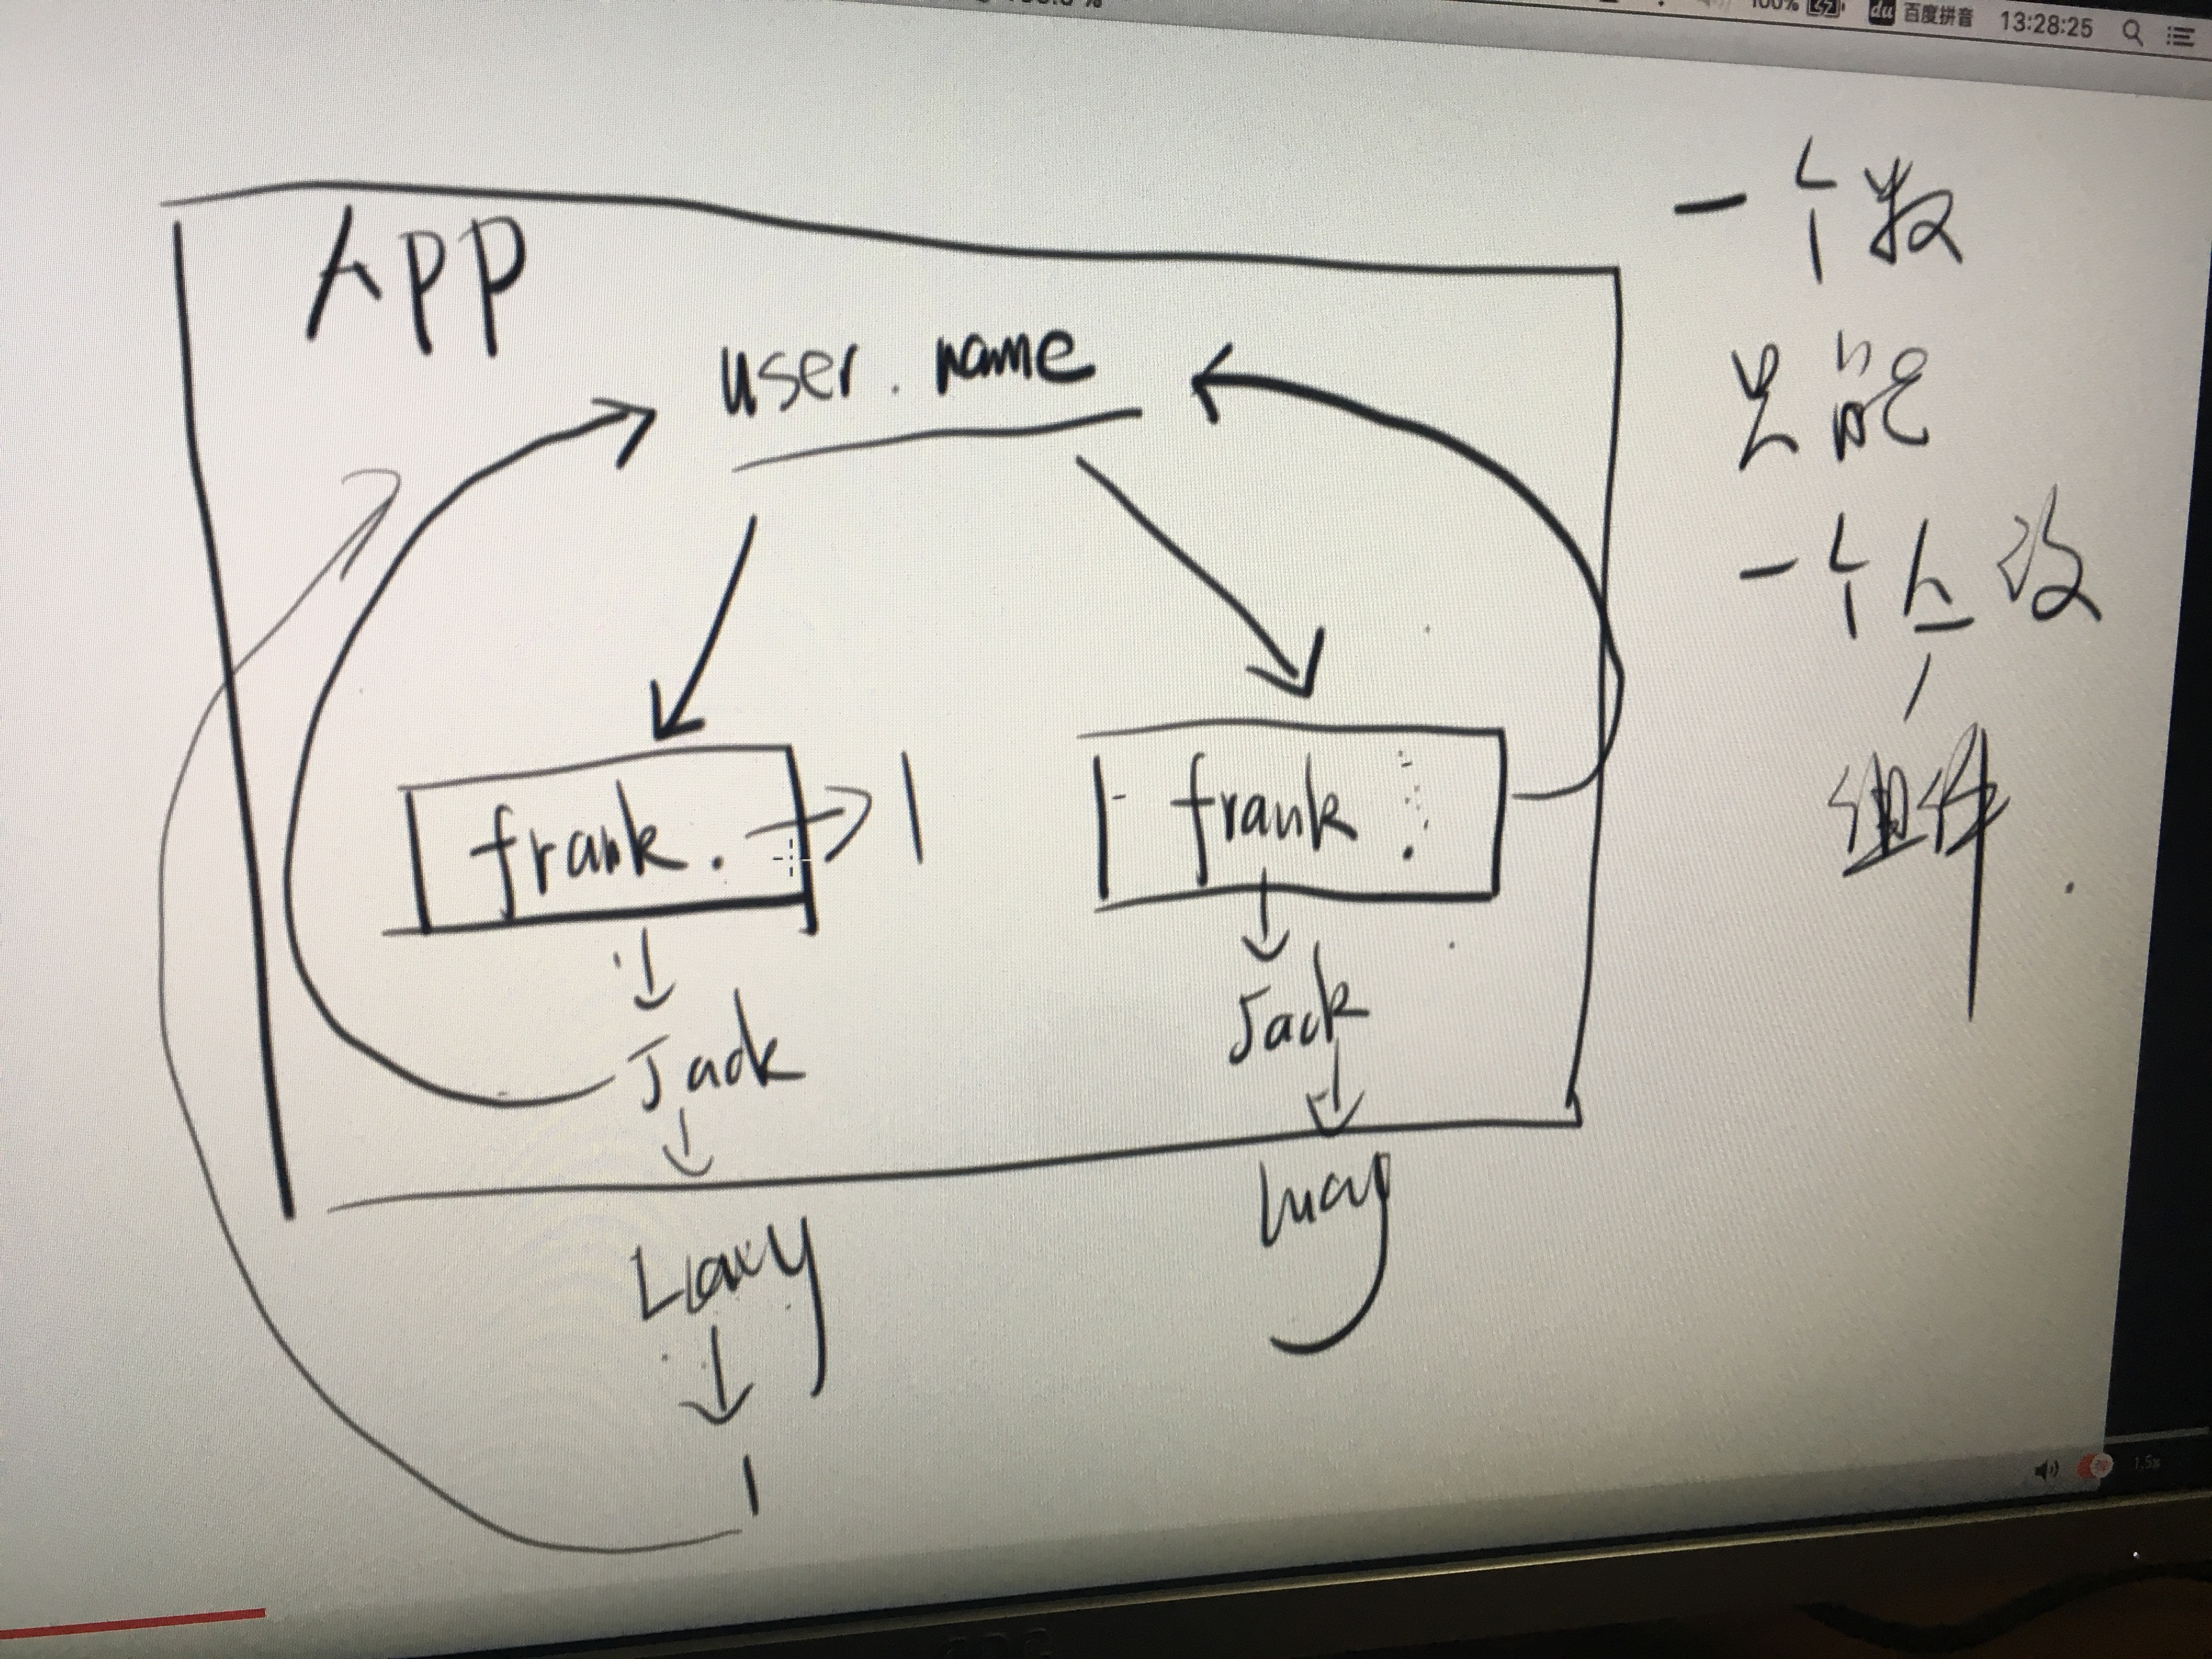 100%
du 百度拼音 13:28:25
APP
user.name
frank. → |
frank
Jack
Jack
Lucy
一个数
只能
一个人改
组件
1.5x